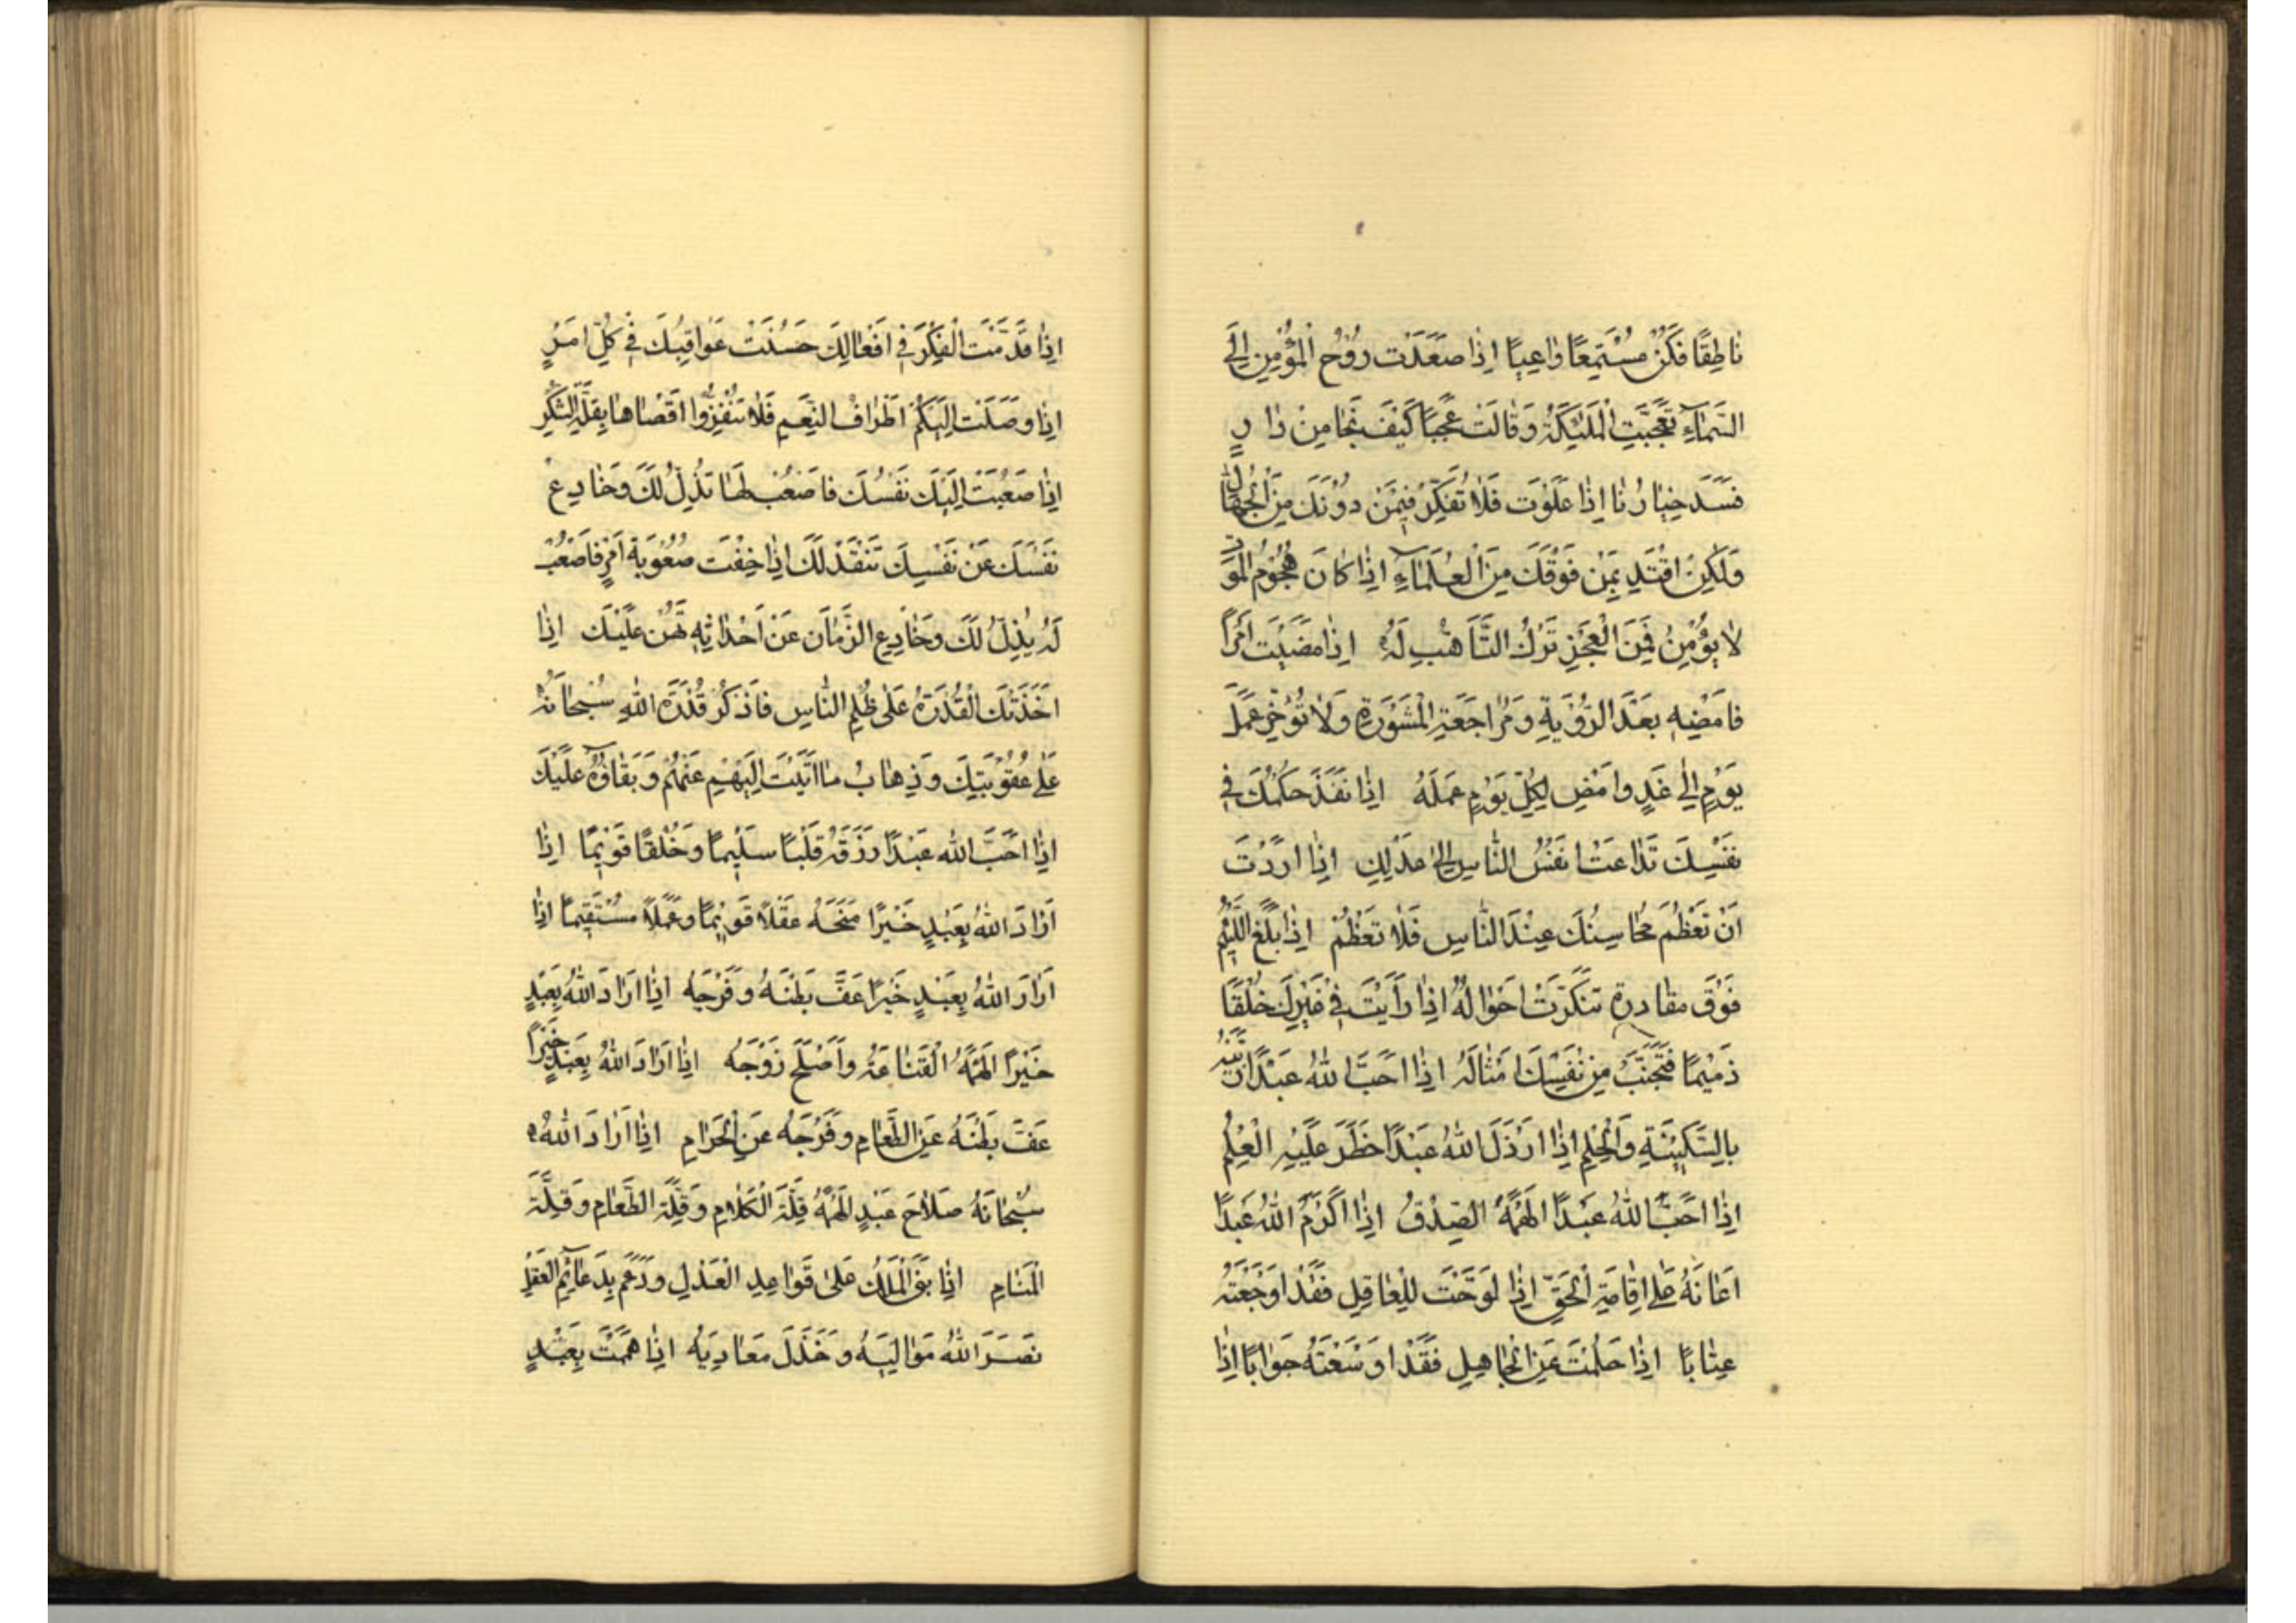 نٰاطِقًا فَكُنْ مُسْتَمِعًا وٰاعِيًا اِذٰا صَعَدَتْ رُوْحُ الْمُؤْمِنِ اِلَى
السَّمٰآءِ تَعَجَّبَتِ الْمَلٰئِكَةُ وَقٰالَتْ عَجَبًا كَيْفَ نَجٰا مِنْ دٰارٍ
فَسَدَ خِيٰارُنٰا اِذٰا عَلَوْتَ فَلٰا تُفَكِّرْ فِيْمَنْ دُوْنَكَ مِنَ الْجُهّٰالِ
وَلٰكِنْ اقْتَدِ بِمَنْ فَوْقَكَ مِنَ الْعُلَمٰآءِ اِذٰا كٰانَ هُجُوْمُ الْمَوْتِ
لٰا يُؤْمَنُ فَمِنَ الْعَجْزِ تَرْكُ التَّاَهُّبِ لَهُ اِذٰا مَضَيْتَ اَمْرًا
فَامْضِيهِ بَعْدَ الرُّؤْيَةِ وَمُرٰاجَعَةِ الْمَشْوَرَةِ وَلٰا تُؤَخِّرْ عَمَلَ
يَوْمٍ اِلٰى غَدٍ وَامْضِ لِكُلِّ يَوْمٍ عَمَلَهُ اِذٰا نَفَذَ حُكْمُكَ فِي
نَفْسِكَ تَدٰاعَتْ اَنْفُسُ النّٰاسِ اِلٰى عَدْلِكَ اِذٰا اَرَدْتَ
اَنْ تَعْظُمَ مَحٰاسِنُكَ عِنْدَ النّٰاسِ فَلٰا تَعْظُمْ اِذٰا بَلَغَ اللَّئِيْمُ
فَوْقَ مِقْدٰارِهِ تَنَكَّرَتْ اَحْوٰالُهُ اِذٰا رَاَيْتَ فِيْ غَيْرِكَ خُلْقًا
ذَمِيْمًا فَتَجَنَّبْ مِنْ نَفْسِكَ اَمْثٰالَهُ اِذٰا اَحَبَّ اللّٰهُ عَبْدًا زَيَّنَهُ
بِالسَّكِيْنَةِ وَالْحِلْمِ اِذٰا اَرْذَلَ اللّٰهُ عَبْدًا حَظَرَ عَلَيْهِ الْعِلْمَ
اِذٰا اَحَبَّ اللّٰهُ عَبْدًا اَلْهَمَهُ الصِّدْقَ اِذٰا اَكْرَمَ اللّٰهُ عَبْدًا
اَعٰانَهُ عَلٰى اِقٰامَةِ الْحَقِّ اِذٰا لَوَّحْتَ لِلْعٰاقِلِ فَقَدْ اَوْجَعْتَهُ
عِتٰابًا اِذٰا حَلُمْتَ عَنِ الْجٰاهِلِ فَقَدْ اَوْسَعْتَهُ جَوٰابًا اِذٰا
اِذٰا قَدَّمْتَ الْفِكْرَ فِيْ اَفْعٰالِكَ حَسُنَتْ عَوٰاقِبُكَ فِيْ كُلِّ اَمْرٍ
اِذٰا وَصَلَتْ اِلَيْكُمْ اَطْرٰافُ النِّعَمِ فَلٰا تُنَفِّرُوا اَقْصٰاهٰا بِقِلَّةِ الشُّكْرِ
اِذٰا صَعُبَتْ اِلَيْكَ نَفْسُكَ فَاصْعُبْ لَهٰا تَذِلُّ لَكَ وَخٰادِعْ
نَفْسَكَ عَنْ نَفْسِكَ تَنْقَدْ لَكَ اِذٰا خِفْتَ صُعُوْبَةَ اَمْرٍ فَاصْعُبْ
لَهُ يَذِلُّ لَكَ وَخٰادِعِ الزَّمٰانَ عَنْ اَحْدٰاثِهِ تَهُنْ عَلَيْكَ اِذٰا
اَخَذَتْكَ الْقُدْرَةُ عَلٰى ظُلْمِ النّٰاسِ فَاذْكُرْ قُدْرَةَ اللّٰهِ سُبْحٰانَهُ
عَلٰى عُقُوْبَتِكَ وَذِهٰابُ مٰا اَتَيْتَ اِلَيْهِمْ عَنْهُمْ وَبَقٰاؤُهُ عَلَيْكَ
اِذٰا اَحَبَّ اللّٰهُ عَبْدًا رَزَقَهُ قَلْبًا سَلِيْمًا وَخُلْقًا قَوِيْمًا اِذٰا
اَرٰادَ اللّٰهُ بِعَبْدٍ خَيْرًا مَنَحَهُ عَقْلًا قَوِيْمًا وَعَمَلًا مُسْتَقِيْمًا اِذٰا
اَرٰادَ اللّٰهُ بِعَبْدٍ خَيْرًا عَفَّ بَطْنَهُ وَفَرْجَهُ اِذٰا اَرٰادَ اللّٰهُ بِعَبْدٍ
خَيْرًا اَلْهَمَهُ الْقَنٰاعَةَ وَاَصْلَحَ زَوْجَهُ اِذٰا اَرٰادَ اللّٰهُ بِعَبْدٍ خَيْرًا
عَفَّ بَطْنَهُ عَنِ الطَّعٰامِ وَفَرْجَهُ عَنِ الْحَرٰامِ اِذٰا اَرٰادَ اللّٰهُ
سُبْحٰانَهُ صَلٰاحَ عَبْدٍ اَلْهَمَهُ قِلَّةَ الْكَلٰامِ وَقِلَّةَ الطَّعٰامِ وَقِلَّةَ
الْمَنٰامِ اِذٰا بَنَى الْمَلِكُ عَلٰى قَوٰاعِدِ الْعَدْلِ وَدَعَمَ بِدَعٰآئِمِ الْعَقْلِ
نَصَرَ اللّٰهُ مَوٰالِيَهُ وَخَذَلَ مَعٰادِيَهُ اِذٰا هَمَمْتَ بِعَبْدٍ